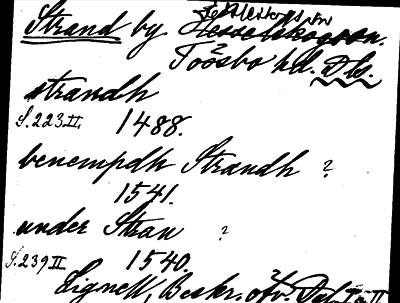 Strand by
Tössbo hd. Dls.
strandh
S. 223 II. 1488.
benempdh Strandh ?
1541.
under Stran ?
S. 239 II 1540.
Lignell, Beskr. öfv. Dal II